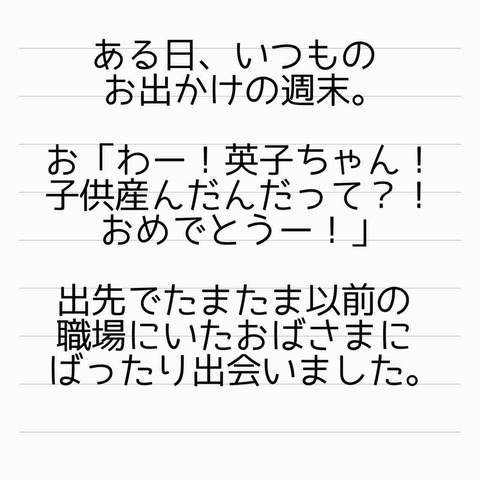 ある日、いつもの
お出かけの週末。
お「わー！英子ちゃん！
子供産んだんだって？！
おめでとうー！」
出先でたまたま以前の
職場にいたおばさまに
ばったり出会いました。